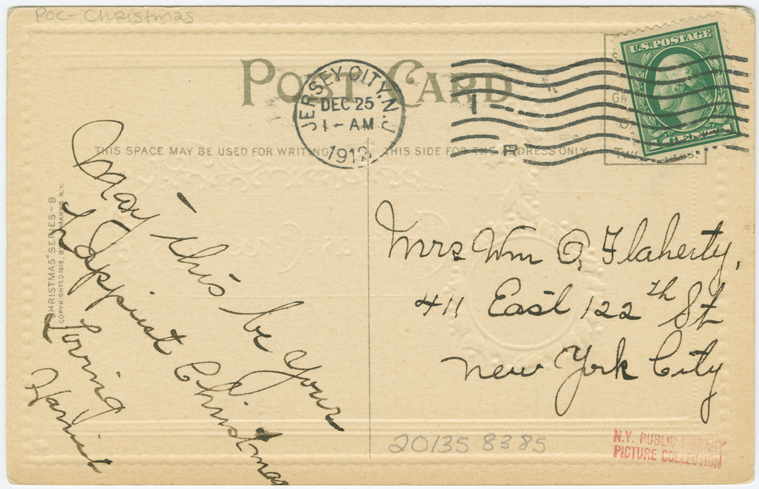 POC-Christmas
POST CARD
JERSEY CITY, N.J.
DEC 25
1-AM
1912
U.S. POSTAGE
THIS SPACE MAY BE USED FOR WRITING
THIS SIDE FOR THE ADDRESS ONLY
"CHRISTMAS" SERIES-B
COPYRIGHTED 1912, N.Y.
May this be your
happiest Christmas
Loving
Harriet
Mrs Wm O. Flaherty,
411 East 122th St
New York City
20135 8385
N.Y. PUBLIC LIBRARY
PICTURE COLLECTION